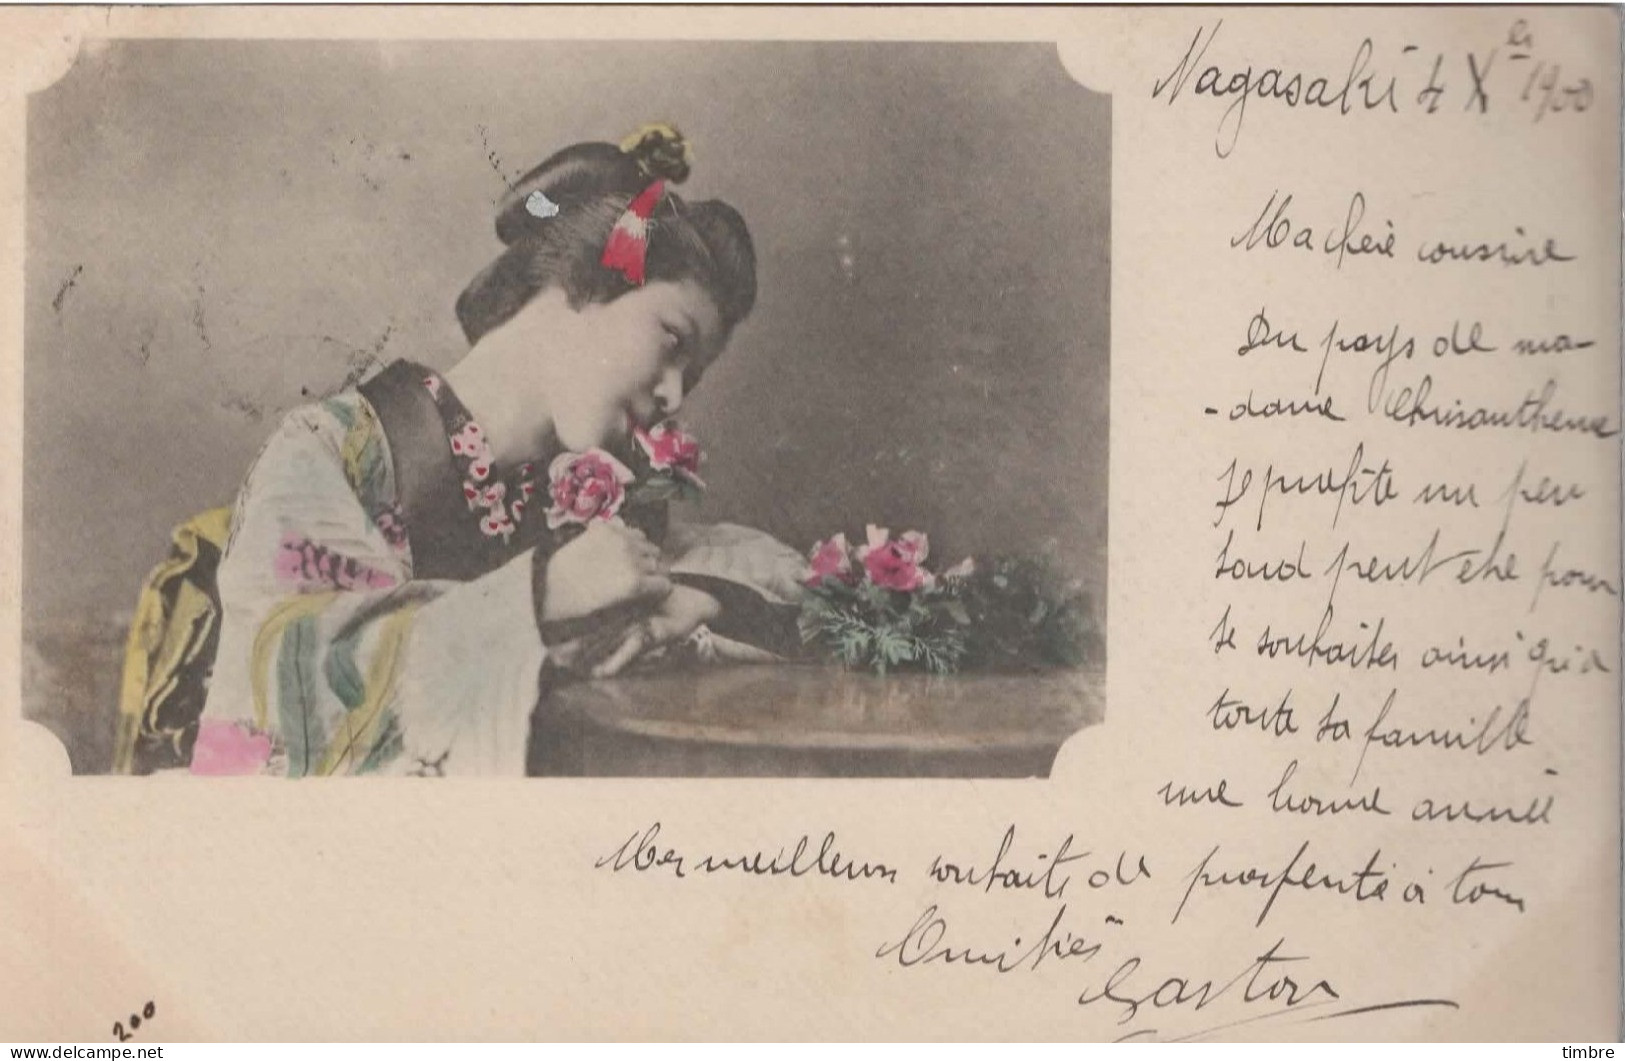 Nagasaki 4 Xbre 1900
Ma chère cousine
Du pays de ma-
-dame Chrisanthème
je profite un peu
tard peut etre pour
te souhaiter ainsi qu'à
toute ta famille
une bonne année
Mes meilleurs souhaits de prosperité à tous
Amitiés
Gaston
200
www.delcampe.net
timbre